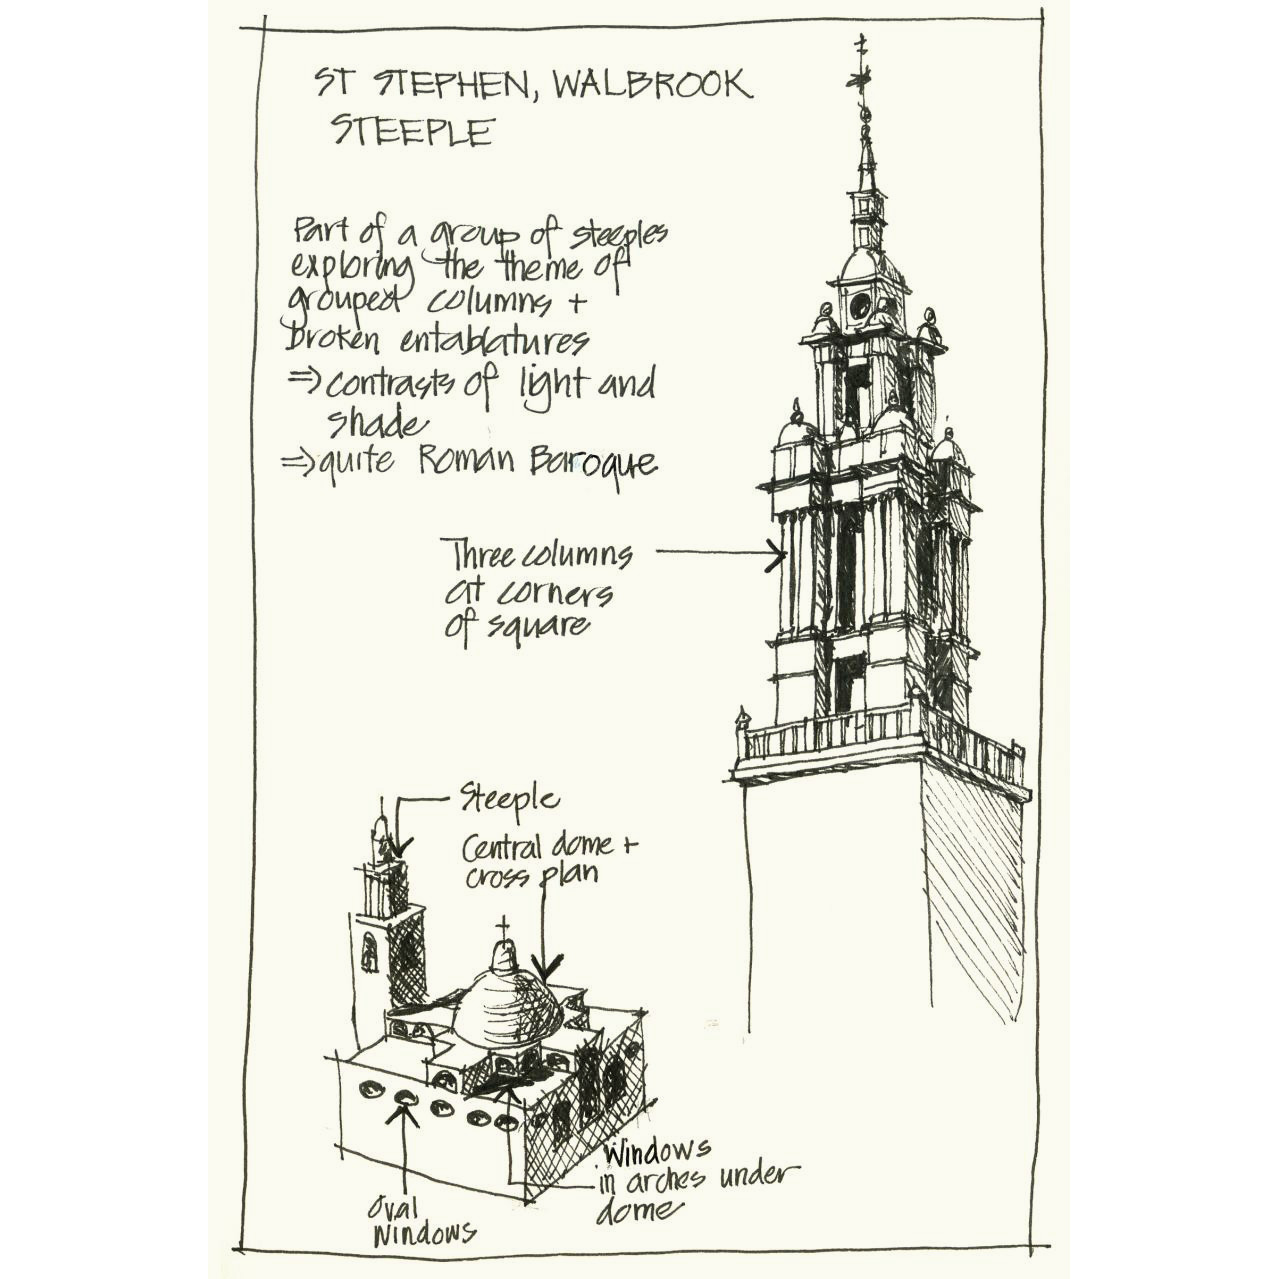 ST STEPHEN, WALBROOK
STEEPLE
Part of a group of steeples
exploring the theme of
grouped columns +
broken entablatures
⇒ contrasts of light and
shade
⇒ quite Roman Baroque
Three columns
at corners
of square
Steeple
Central dome +
cross plan
Windows
in arches under
dome
Oval
Windows